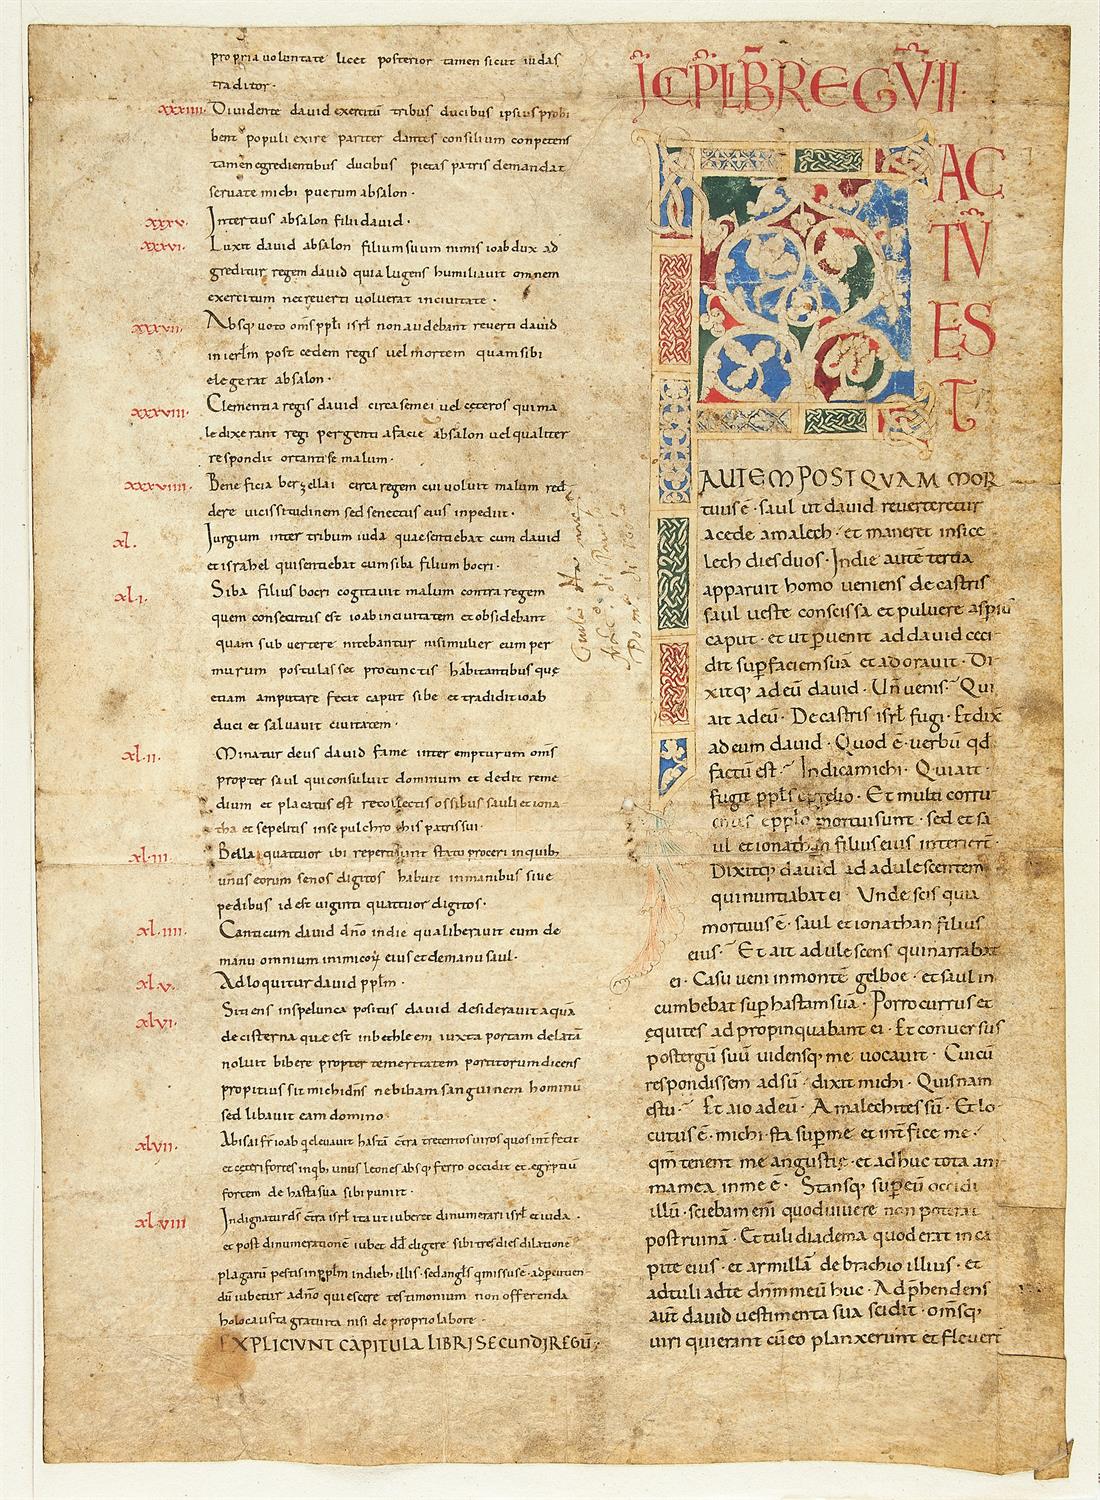 propria uoluntate licet posterior tamen sicut iudas
traditor·
xxxiiii· Diuidente dauid exercitū tribus ducibus ipsius prohi
bent populi exire pariter dantes consilium conpetens
tamen egredientibus ducibus pietas patris demandat
seruate michi puerum absalon·
xxxv· Interitus absalon filii dauid·
xxxvi· Luxit dauid absalon filium suum nimis ioab dux ad
greditur regem dauid quia lugens humiliauit omnem
exercitum nec reuerti uoluerat in ciuitate·
xxxvii· Absq uoto om̄s ppl̄i isrl̄ non audebant reuerti dauid
in ierl̄m post cedem regis uel mortem quam sibi
elegerat absalon·
xxxviii· Clementia regis dauid circa semei uel cęteros qui ma
ledixerant regi pergenti a facie absalon uel qualiter
respondit ortantise malum·
xxxviiii· Beneficia berzellai circa regem cui uoluit malum red
dere uicissitudinem sed senectus eius inpediit·
xl. Iurgium inter tribum iuda quae sentiebat cum dauid
et israhel qui sentiebat cum siba filium bocri·
xl·i· Siba filius bocri cogitauit malum contra regem
quem consecutus est ioab in ciuitatem et obsidebant
quam subuertere nitebantur nisi mulier eum per
murum postulasset pro cunctis habitantibus que
etiam amputare fecit caput sibe et tradidit ioab
duci et saluauit ciuitatem·
xl·ii· Minatur deus dauid fame inter empturum om̄s
propter saul qui consuluit dominum et dedit reme
dium et placatus est recollectis ossibus sauli et iona
tha et sepelitis in sepulchro his patris sui·
xl·iii· Bella quattuor ibi reperti sunt statu proceri in quib;
unus eorum senos digitos habuit in manibus siue
pedibus id est uiginti quattuor digitos·
xl·iiii· Canticum dauid dn̄o in die qua liberauit eum de
manu omnium inimicoꝝ eius et de manu saul·
xl·v· Adloquitur dauid ppl̄m·
xlvi· Sitiens in spelunca positus dauid desiderauit aquā
de cisterna que est in bethleem iuxta portam delatā
noluit bibere propter temeritatem portitorum dicens
propitius sit michi dn̄s ne bibam sanguinem hominū
sed libauit eam domino
xlvii· Abisai fr̄ ioab q̄ leuauit hastā c̄tra trecentos uiros quos int̄fecit
et cęteri fortes in qib; unus leones absq ferro occidit et egyptiū
fortem de hasta sua sibi puniit·
xl·viii Indignatur ds̄ c̄tra isrl̄ ita ut iuberet dinumerari isrl̄ et iuda·
et post dinumerationē iubet dd̄ digere sibi tres dies dilatione
plagarū pestis in ppl̄m in dieb; illis· sed angl̄s q̄ missus ē· ad peruen
dū iubetur a dn̄o quiescere testimonium non offerenda
holocausta gratuita nisi de proprio labore·
EXPLICIUNT CAPITULA LIBRI SECUNDI REGŪ·
INCIP̄ LIB̄ REGV̄ II·
FACTV̄ EST
AUTEM POSTQUAM MOR
tuus ē· saul ut dauid reuerteretur
a cede amalech· et maneret in sice
lech dies duos· In die autē tertia
apparuit homo ueniens de castris
saul ueste conscissa et puluere aspsus
caput· et ut puenit ad dauid ceci
dit sup faciem suā et adorauit· Di
xitq ad eū dauid· Un̄ uenis· Qui
ait ad eū· De castris isrl̄ fugi· Et dix̄
ad eum dauid· Quod ē· uerbū qd̄
factū est· Indica michi· Qui ait·
fugit ppl̄s e prelio· Et multi corru
entes e pplo mortui sunt· sed et sa
ul et ionathan filius eius interiert̄·
Dixitq dauid ad adulescentem
qui nuntiabat ei· Unde scis quia
mortuus ē· saul et ionathan filius
eius· Et ait adulescens qui narrabat
ei· Casu ueni in montē gelboe· et saul in
cumbebat sup hastam suā· Porro currus et
equites adpropinquabant ei· Et conuersus
post ergū suū uidensq me uocauit· Cui cū
respondissem adsū· dixit michi· Quis nam
es tu· Et aio ad eū· Amalechites sū· Et lo
cutus ē· michi· sta sup me et int̄fice me·
qm̄ tenent me angustię· et adhuc tota ani
ma mea in me ē· Stansq sup eū occidi
illū· sciebam eni quod uiuere non poterat
post ruinā· Et tuli diadema quod erat in ca
pite eius· et armillā de brachio illius· et
adtuli ad te dn̄m meū huc· Adphendens
aut̄ dauid uestimenta sua scidit· om̄sq
uiri qui erant cū eo planxerunt et fleuert̄